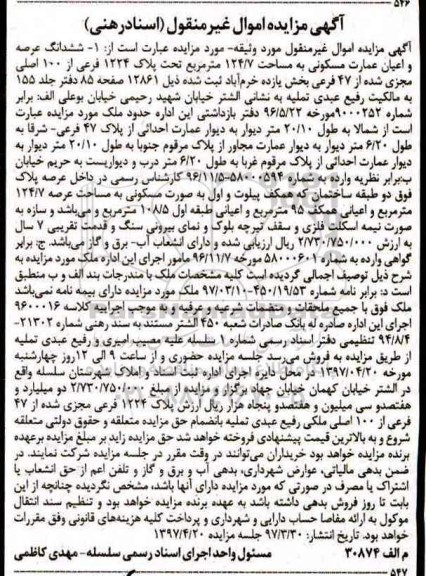 ۵۴۶
آگهی مزایده اموال غیرمنقول (اسنادرهنی)
آگهی مزایده اموال غیرمنقول مورد وثیقه- مورد مزایده عبارت است از: ۱- ششدانگ عرصه
و اعیان عمارت مسکونی به مساحت ۱۲۴/۷ مترمربع تحت پلاک ۱۲۲۴ فرعی از ۱۰۰ اصلی
مجزی شده از ۴۷ فرعی بخش یازده خرم‌آباد ثبت شده ذیل ۱۲۸۶۱ صفحه ۸۵ دفتر جلد ۱۵۵
به مالکیت رفیع عبدی تملیه به نشانی الشتر خیابان شهید رحیمی خیابان بوعلی الف: برابر
شماره ۹۰۰۰۲۵۲مورخه ۹۶/۵/۲۲ دفتر بازداشتی این اداره حدود ملک مورد مزایده عبارت
است از شمالا به طول ۲۰/۱۰ متر دیوار به دیوار عمارت احداثی از پلاک ۴۷ فرعی- شرقا به
طول ۶/۲۰ متر دیوار به دیوار عمارت مجاور از پلاک مرقوم جنوبا به طول ۲۰/۱۰ متر دیوار به
دیوار عمارت احداثی از پلاک مرقوم غربا به طول ۶/۲۰ متر درب و دیواریست به حریم خیابان
ب:برابر نظریه وارده به شماره ۵۸۰۰۰۵۹۴-۹۶/۱۱/۵ کارشناس رسمی در داخل عرصه پلاک
فوق دو طبقه ساختمان که همکف پیلوت و اول به صورت مسکونی به مساحت عرصه ۱۲۴/۷
مترمربع و اعیانی همکف ۹۵ مترمربع و اعیانی طبقه اول ۱۰۸/۵ مترمربع و می‌باشد و سازه به
صورت نیمه اسکلت فلزی و سقف تیرچه بلوک و نمای بیرونی سنگ و قدمت تقریبی ۷ سال
به ارزش ۲/۷۳۰/۷۵۰/۰۰۰ ریال ارزیابی شده و دارای انشعاب آب- برق و گاز می‌باشد. ج: برابر
گواهی وارده به شماره ۵۸۰۰۰۶۰۱ مورخه ۹۶/۱۱/۷ مامور اجرای این اداره ملک مورد مزایده به
شرح ذیل توصیف اجمالی گردیده است کلیه مشخصات ملک با مندرجات بند الف و ب منطبق
است د: برابر نامه شماره ۴۵۰/۱۹/۵۳-۹۷/۰۳/۱۱ ملک مورد مزایده دارای بیمه نامه نمی‌باشد
ملک فوق با جمیع ملحقات و متعلقات شرعیه و عرفیه که به موجب اجراییه کلاسه ۹۶۰۰۰۱۶
اجرای این اداره صادره له بانک صادرات شعبه ۴۵۰ الشتر مستند به سند رهنی شماره ۲۱۳۰۲-
۹۴/۸/۴ تنظیمی دفتر اسناد رسمی شماره ۱ سلسله علیه مصیب امیری و رفیع عبدی تملیه
از طریق مزایده به فروش می‌رسد جلسه مزایده حضوری و از ساعت ۹ الی ۱۲ روز چهارشنبه
مورخه ۱۳۹۷/۰۴/۲۰ در محل شعبه اجرای اداره ثبت اسناد و املاک شهرستان سلسله واقع
در الشتر خیابان کهمان خیابان جهاد برگزار و مزایده از مبلغ ۲/۷۳۰/۷۵۰/۰۰۰ دو میلیارد و
هفتصدو سی میلیون و هفتصدو پنجاه هزار ریال ارزش پلاک ۱۲۲۴ فرعی مجزی شده از ۴۷
فرعی از ۱۰۰ اصلی ملکی رفیع عبدی تملیه بانضمام حق مزایده متعلقه و حقوق دولتی متعلقه
شروع و به بالاترین قیمت پیشنهادی فروخته خواهد شد حق مزایده زاید بر مبلغ مزایده برعهده
برنده مزایده خواهد بود خریداران می‌توانند در وقت مقرر در جلسه مزایده شرکت نمایند. در
ضمن بدهی مالیاتی، عوارض شهرداری، بدهی آب و برق و گاز و تلفن اعم از حق انشعاب یا
اشتراک یا مصرف در صورتی که مورد مزایده دارای آنها باشد، مشخص نگردیده چنانچه از این
بابت تا روز فروش بدهی داشته باشد به عهده برنده مزایده خواهد بود و تنظیم سند انتقال
موکول به ارائه مفاصا حساب دارایی و شهرداری و پرداخت کلیه هزینه‌های قانونی وفق مقررات
خواهد بود. تاریخ انتشار: ۹۷/۳/۳۰ جلسه مزایده ۱۳۹۷/۴/۲۰
م الف ۳۰۸۷۴ مسئول واحد اجرای اسناد رسمی سلسله- مهدی کاظمی
۵۴۷